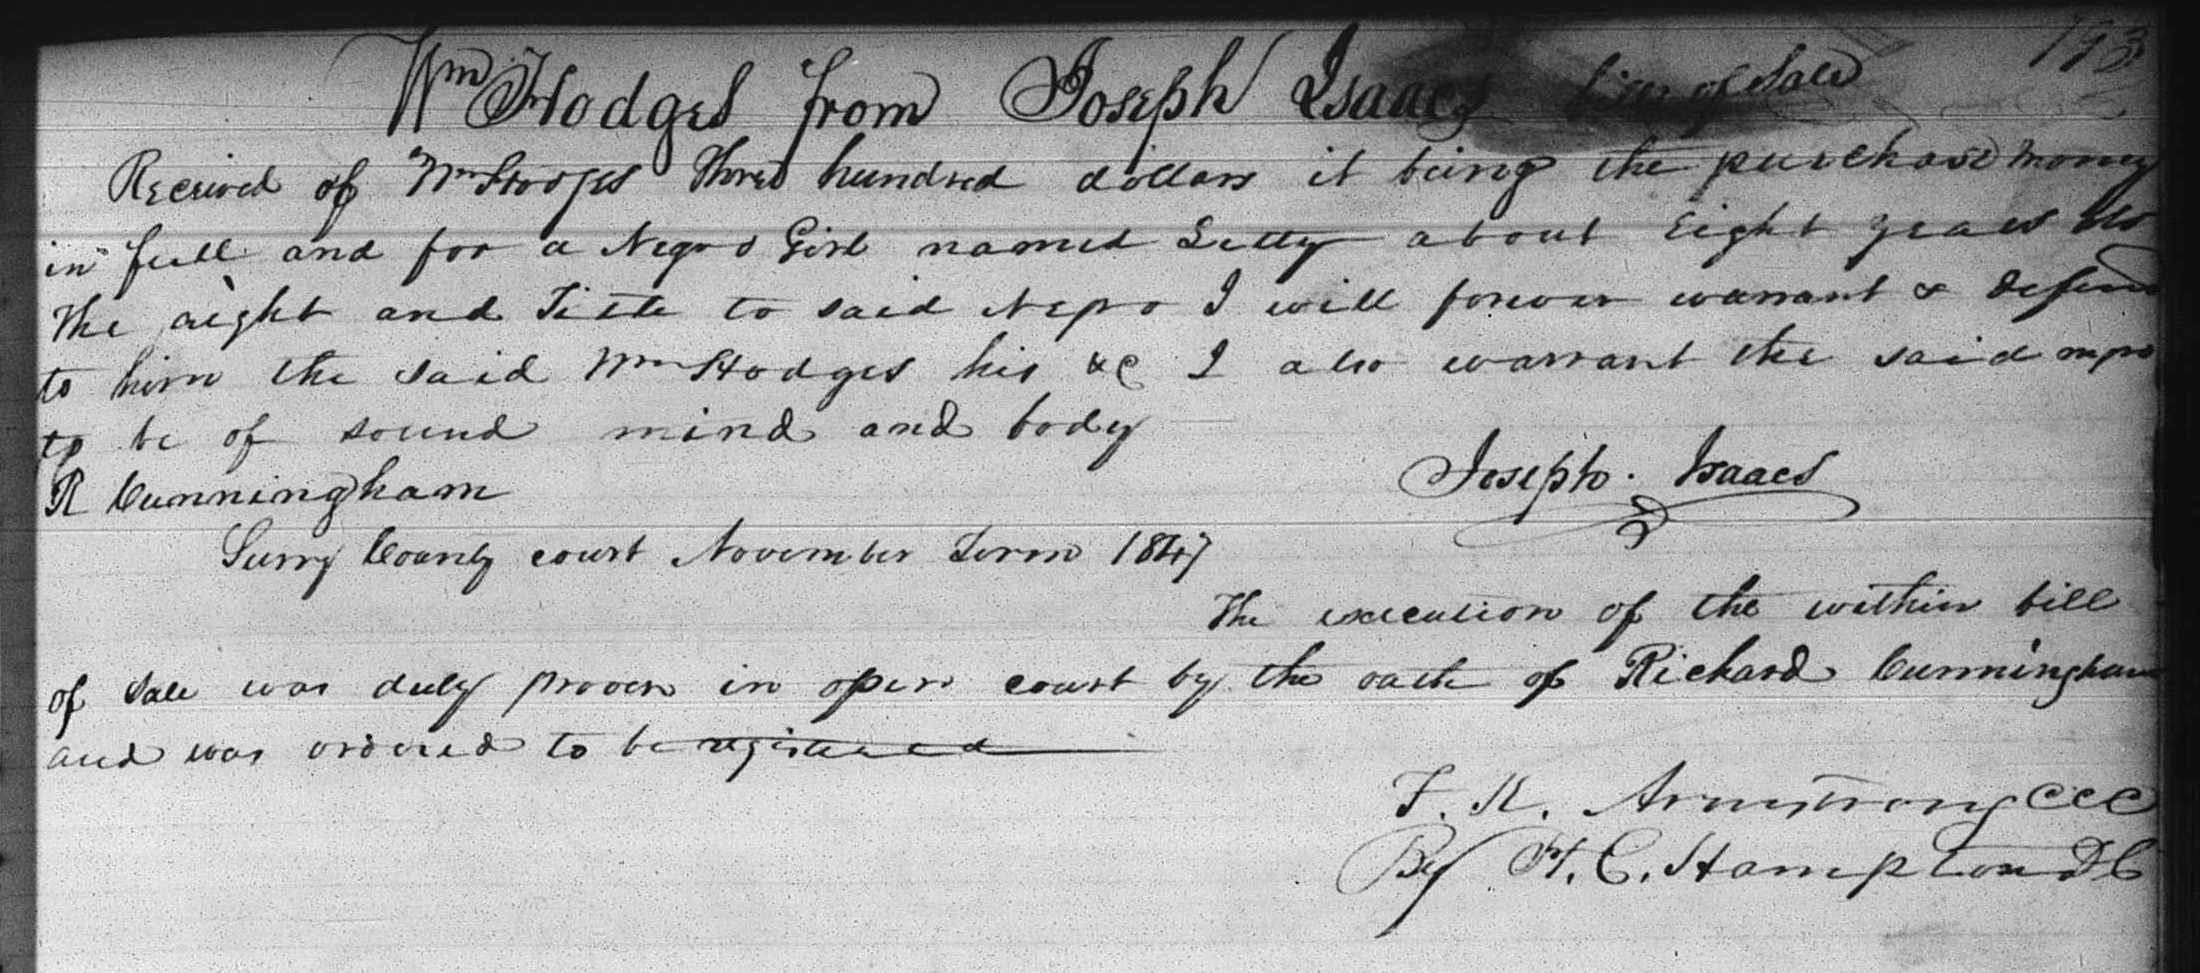 193
Wm Hodges from Joseph Isaacs bill of Sale
Received of Wm Hodges Three hundred dollars it being the purchase money
in full and for a Negro Girl named Letty about Eight years old
The right and Title to said Negro I will forever warrant & defend
to him the said Wm Hodges his &C I also warrant the said negro
to be of sound mind and body
R Cunningham Joseph Isaacs
Surry County court November Term 1847
The execution of the within bill
of sale was duly proven in open court by the oath of Richard Cunningham
and was ordered to be registered
F. K. Armstrong CCC
By H. C. Hampton DC